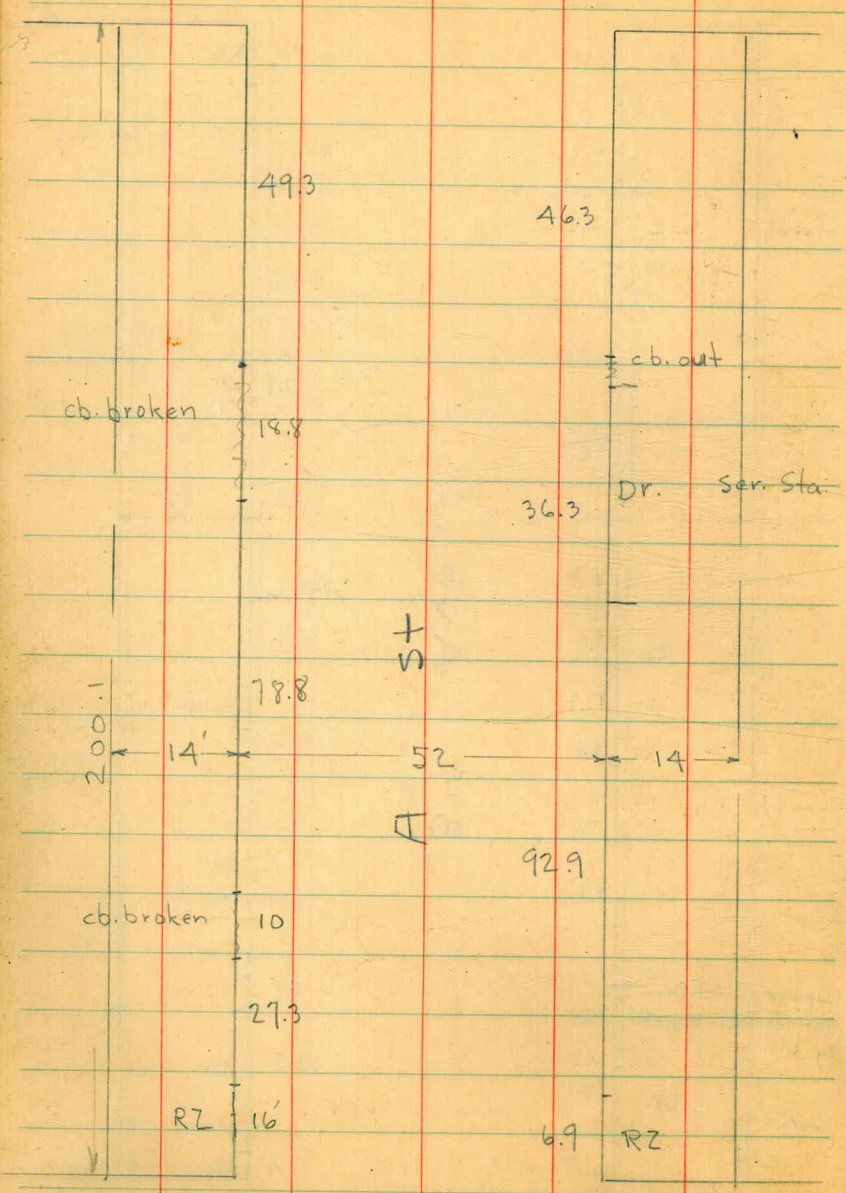 49.3
46.3
cb. out
cb. broken
18.8
Dr.
Ser. Sta.
36.3
A St
78.8
200.1
14'
52
14
92.9
cb. broken
10
27.3
RZ
16'
6.9
RZ